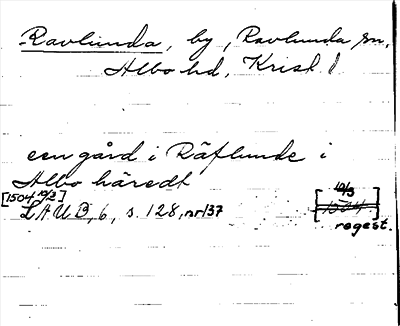 Ravlunda, by, Ravlunda sn,
Albo hd, Krist l
een gård i Räflunde i
Albo häredt
[1504 10/3]
LAUB, 6, s. 128, nr 137
[10/3
1504]
regest.